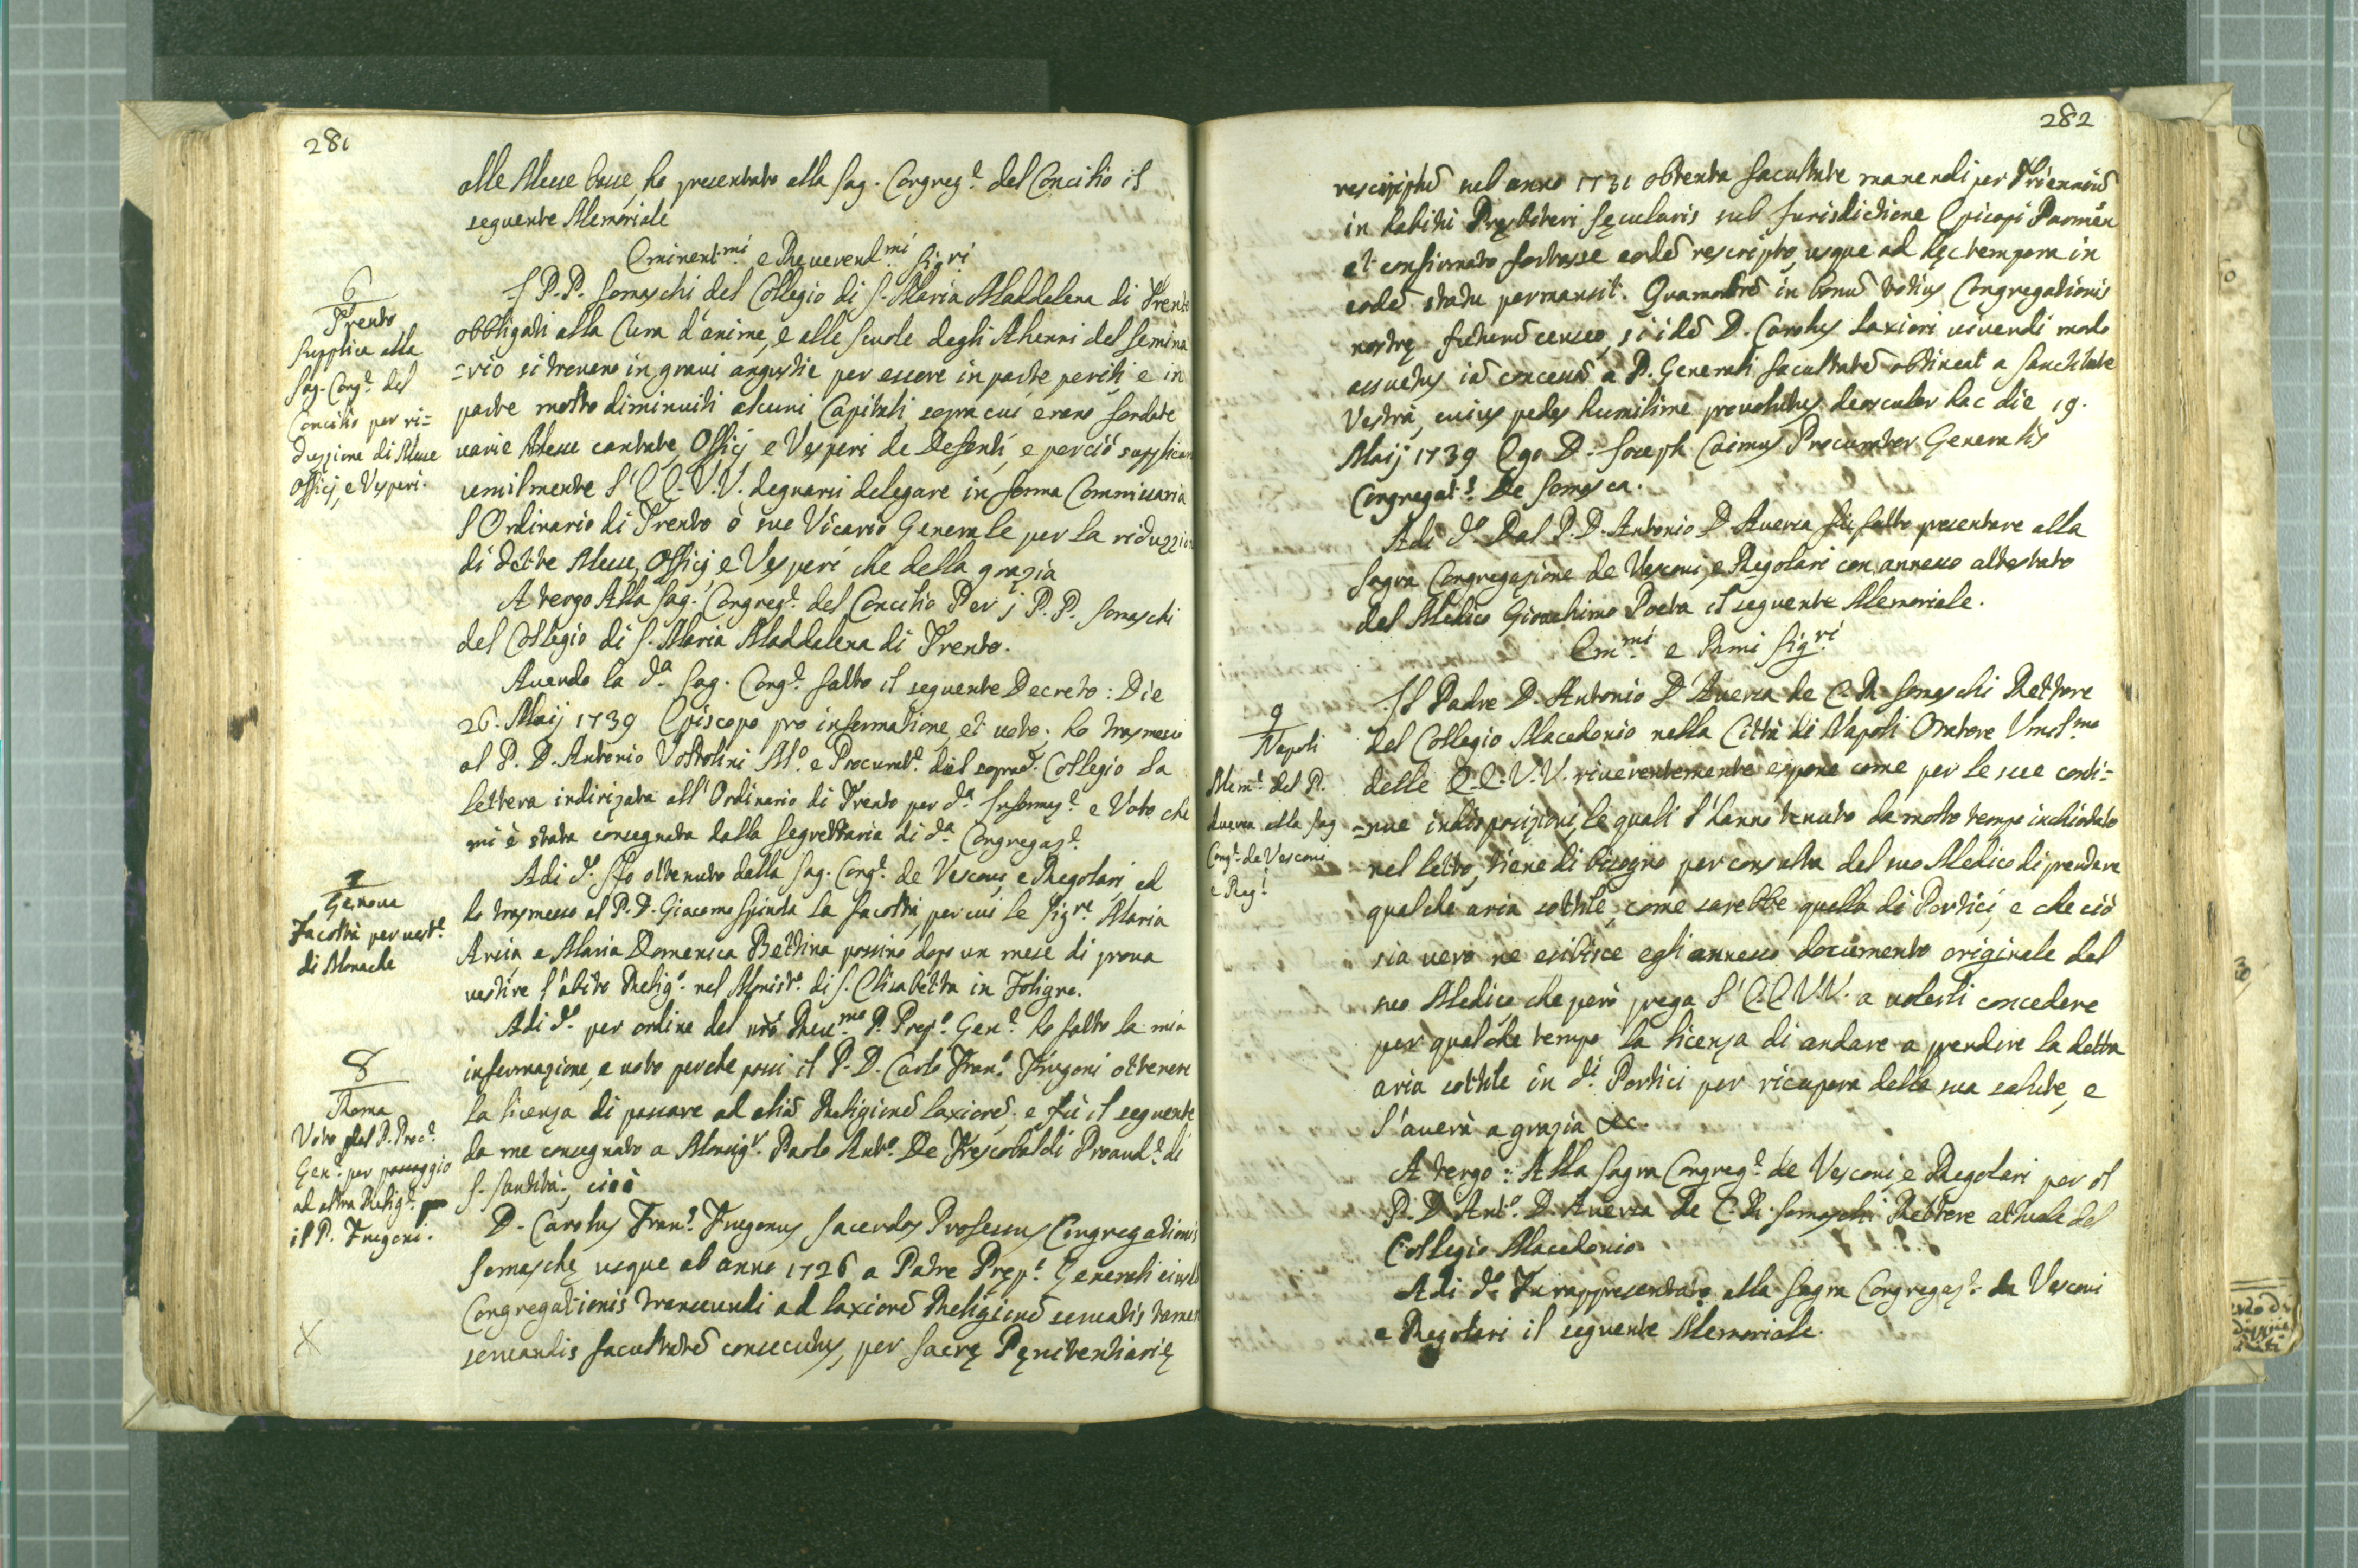 281
alle Messe basse, ho presentato alla Sag. Congreg.e del Concilio il
seguente Memoriale
Eminent.mi e Reverend.mi Sig.ri
6
Trento
Supplica alla
Sag. Cong.e del
Concilio per ri=
duzzione di Messe
Officj, e Vesperi.
I P.P. Somaschi del Collegio di S. Maria Maddalena di Trento
obbligati alla Cura d'anime, e alle Scuole degli Alunni del Semina
=rio si trovano in gravi angustie per essere in parte periti e in
parte molto diminuiti alcuni Capitali, sopra cui erano fondate
varie Messe cantate, Officj e Vesperi de Defonti, e perciò supplican
umilmente l'E.E. V.V. degnarsi delegare in forma Commissaria
l'Ordinario di Trento ò suo Vicario Generale per la riduzzion
di dette Messe, Officj, e Vesperi che della grazia
A tergo Alla Sag. Congreg.e del Concilio Per j P.P. Somaschi
del Collegio di S. Maria Maddalena di Trento.
Avendo la d.a Sag. Cong.e fatto il seguente Decreto: Die
26. Maij 1739 Episcopo pro informatione, et voto; ho trasmesso
al P. D. Antonio Vottolini M.o e Procurat.e del soprad.o Collegio la
lettera indirizata all'Ordinario di Trento per d.a Informaz.e e Voto che
mi è stata consegnata dalla Segrettaria di d.a Congregaz.e
7
Genova
Facoltà per vest.e
di Monache
Adi d.o Ho ottenuto dalla Sag. Cong.e de Vescovi, e Regolari, ed
ho trasmesso al P. D. Giacomo Spinola la facoltà, per cui le Sig.re Maria
Arcia, e Maria Domenica Bettina possino dopo un mese di prova
vestire l'abito Relig.o nel Monist.o di S. Elisabetta in Foligno.
8
Roma
Voto del P. Proc.e
Gen.e per passaggio
ad altra Relig.e per
il P. Frugoni.
Adi d.o per ordine del nr̃o Reu.mo P. Prep.o Gen.e ho fatto la mia
informazione, e voto perche possi il P. D. Carlo Fran.o Frugoni ottenere
la licenza di passare ad aliã Religionẽ laxiorẽ; e fù il seguente
da me consegnato a Monsig.r Paolo Ant.o De Frescobaldi Proaud.e di
S. Santità; cioè
D. Carolus Fran.s Frugonus Sacerdos Professus Congregationis
Somaschę usque ab anno 1726 a Patre Pręp.o Generali eiusd
Congregationis transeundi ad laxiorẽ Religionẽ servatis tamen
servandis facultatẽ consecutus, per Sacrę Pęnitentiarię
X
282
rescriptũ sub anno 1731 obtenta facultate manendi per Trienniũ
in habitu Pręsbiteri sęcularis sub Jurisdictione Episcopi Parmẽn
et confirmato fortasse eodẽ rescripto, usque ad hęc tempora in
eodẽ statu permansit. Quamobrẽ in bonũ totius Congregationis
nostrę futurũ censeo, si idẽ D. Carolus laxiori vivendi modo
assuetus iã concessã a P. Generali facultatẽ obtineat a Sanctitate
Vestra, cuius pedes humilime provolutus deosculor hac die 19.
Maij 1739 Ego D. Joseph Caimus Procurator Generalis
Congregat.s De Somasca.
Adi d.o Dal P. D. Antonio D'Aversa fù fatto presentare alla
Sagra Congregazione de Vescovi, e Regolari con annesso attestato
del Medico Gioachimo Poeta il seguente Memoriale.
Em.mi e Rmi Sig.ri
9
Napoli
Mem.e del P.
Aversa alla Sag
Cong.e de Vescovi
e Reg.i
Il Padre D. Antonio D'Aversa de C. R. Somaschi Rettore
del Collegio Macedonio nella Città di Napoli Oratore Umil.mo
delle E.E. V.V. riverentemente espone come per le sue conti=
=nue indisposizioni, le quali l'hanno tenuto da molto tempo inchiodato
nel letto, tiene di bisogno per consulta del suo Medico di prendere
qualche aria sottile, come sarebbe quella di Portici, e che ciò
sia vero ne esibisce egli annesso documento originale del
suo Medico, che però prega l'E.E. V.V. a volerli concedere
per qualche tempo la licenza di andare a prendere la detta
aria sottile in d.i Portici per ricupera della sua salute, e
l'averà a grazia &c.
A tergo: Alla Sagra Congreg.e de Vescovi, e Regolari per il
P. D. Ant.o D'Aversa de C. R. Somaschi Rettore attuale del
Collegio Macedonio.
Adi d.o Fù rappresentato alla Sagra Congregaz.e de Vescovi
e Regolari il seguente Memoriale.